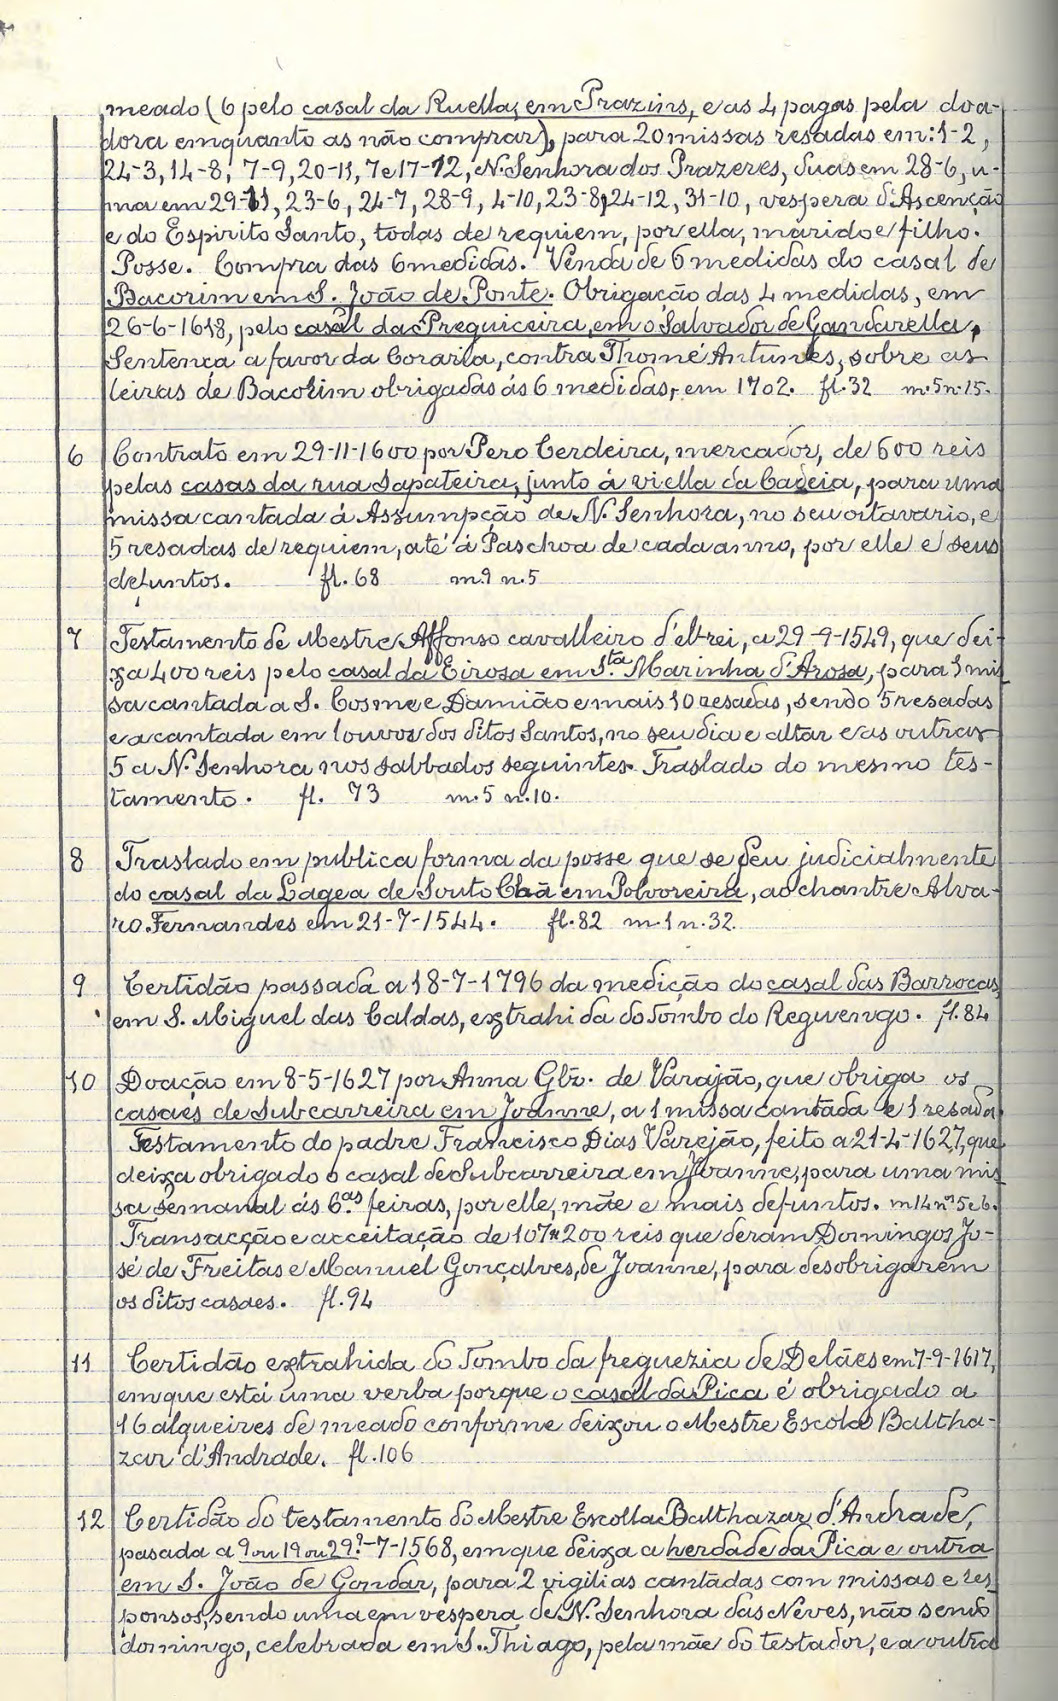 meado (6 pelo casal da Ruella, em Prazins, e as 4 pagas pela doa-
dora emquanto as não comprar), para 20 missas resadas em: 1-2,
24-3, 14-8, 7-9, 20-11, 7 e 17-12, N. Senhora dos Prazeres, duas em 28-6, u-
ma em 29-11, 23-6, 24-7, 28-9, 4-10, 23-8, 24-12, 31-10, vespera d'Ascenção
e do Espirito Santo, todas de requiem, por ella, marido e filho.
Posse. Compra das 6 medidas. Venda de 6 medidas do casal de
Bacorim em S. João de Ponte. Obrigação das 4 medidas, em
26-6-1618, pelo casal da Preguiceira, em o Salvador de Gandarella,
Sentença a favor da Coraria, contra Thomé Antunes, sobre as
leiras de Bacorim obrigadas ás 6 medidas, em 1702. fl. 32 m. 5 n. 15.
6 Contrato em 29-11-1600 por Pero Cerdeira, mercador, de 600 reis
pelas casas da rua Sapateira, junto á viella da Cadeia, para uma
missa cantada á Assumpção de N. Senhora, no seu oitavario, e
5 resadas de requiem, até á Paschoa de cada anno, por elle e seus
defuntos. fl. 68 m. 9 n. 5
7 Testamento de Mestre Affonso cavalleiro d'el-rei, a 29-9-1549, que dei-
xa 400 reis pelo casal da Eirosa em Sta. Marinha d'Arosa, para 1 mis-
sa cantada a S. Cosme e Damião e mais 10 resadas, sendo 5 resadas
e a cantada em louvor dos ditos Santos, no seu dia e altar e as outras
5 a N. Senhora nos sabbados seguintes. Traslado do mesmo tes-
tamento. fl. 73 m. 5 n. 10.
8 Traslado em publica forma da posse que se deu judicialmente
do casal da Lagea de Souto Chã em Polvoreira, ao chantre Alva-
ro Fernandes em 21-7-1544. fl. 82 m. 1 n. 32.
9 Certidão passada a 18-7-1796 da medição do casal das Barrocas,
em S. Miguel das Caldas, extrahida do Tombo do Reguengo. fl. 84
10 Doação em 8-5-1627 por Anna Glz. de Varajão, que obriga os
casaes de Subcarreira em Joanne, a 1 missa cantada e 1 resada.
Testamento do padre Francisco Dias Varejão, feito a 21-4-1627, que
deixa obrigado o casal de Subcarreira em Joanne, para uma mis-
sa semanal ás 6.as feiras, por elle, mãe e mais defuntos. m 14 nos 5 e 6.
Transacção e acceitação de 107#200 reis que deram Domingos Jo-
sé de Freitas e Manuel Gonçalves, de Joanne, para desobrigarem
os ditos casaes. fl. 94
11 Certidão extrahida do Tombo da freguezia de Delães em 7-9-1617,
em que está uma verba porque o casal da Pica é obrigado a
16 alqueires de meado conforme deixou o Mestre Escola Baltha-
zar d'Andrade. fl. 106
12 Certidão do testamento do Mestre Escolla Balthazar d'Andrade,
pasada a 9 ou 19 ou 29?-7-1568, em que deixa a herdade da Pica e outra
em S. João de Gondar, para 2 vigilias cantadas com missas e res-
ponsos, sendo uma em vespera de N. Senhora das Neves, não sendo
domingo, celebrada em S. Thiago, pela mãe do testador, e a outra